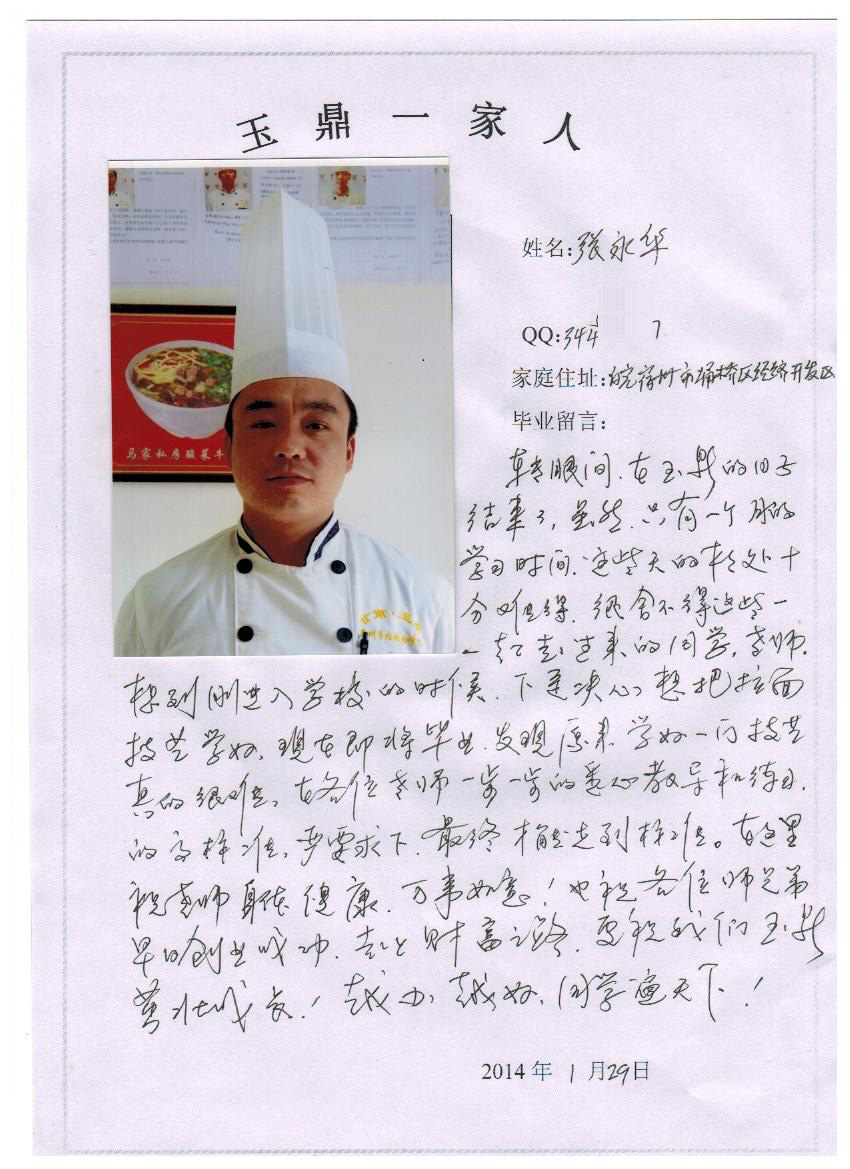 玉鼎一家人
姓名:张永华
QQ:344 7
家庭住址:皖宿州市埇桥区经济开发区
毕业留言：
马家私房酸菜牛
转眼间.在玉鼎的日子
结束了,虽然.只有一个月的
学习时间.这些天的相处十
分难得.很舍不得这些一
一起走过来的同学,老师.
想到刚进入学校的时候.下定决心想把拉面
技艺学好,现在即将毕业.发现原来学好一门技艺
真的很难,在各位老师一步一步的悉心教导和练习.
的高标准,严要求下.最终才能达到标准。在这里
祝老师身体健康.万事如意！也祝各位师兄弟
早日创业成功.走上财富之路.更祝我们玉鼎
茁壮成长！越办越好,同学遍天下！
2014年1月29日